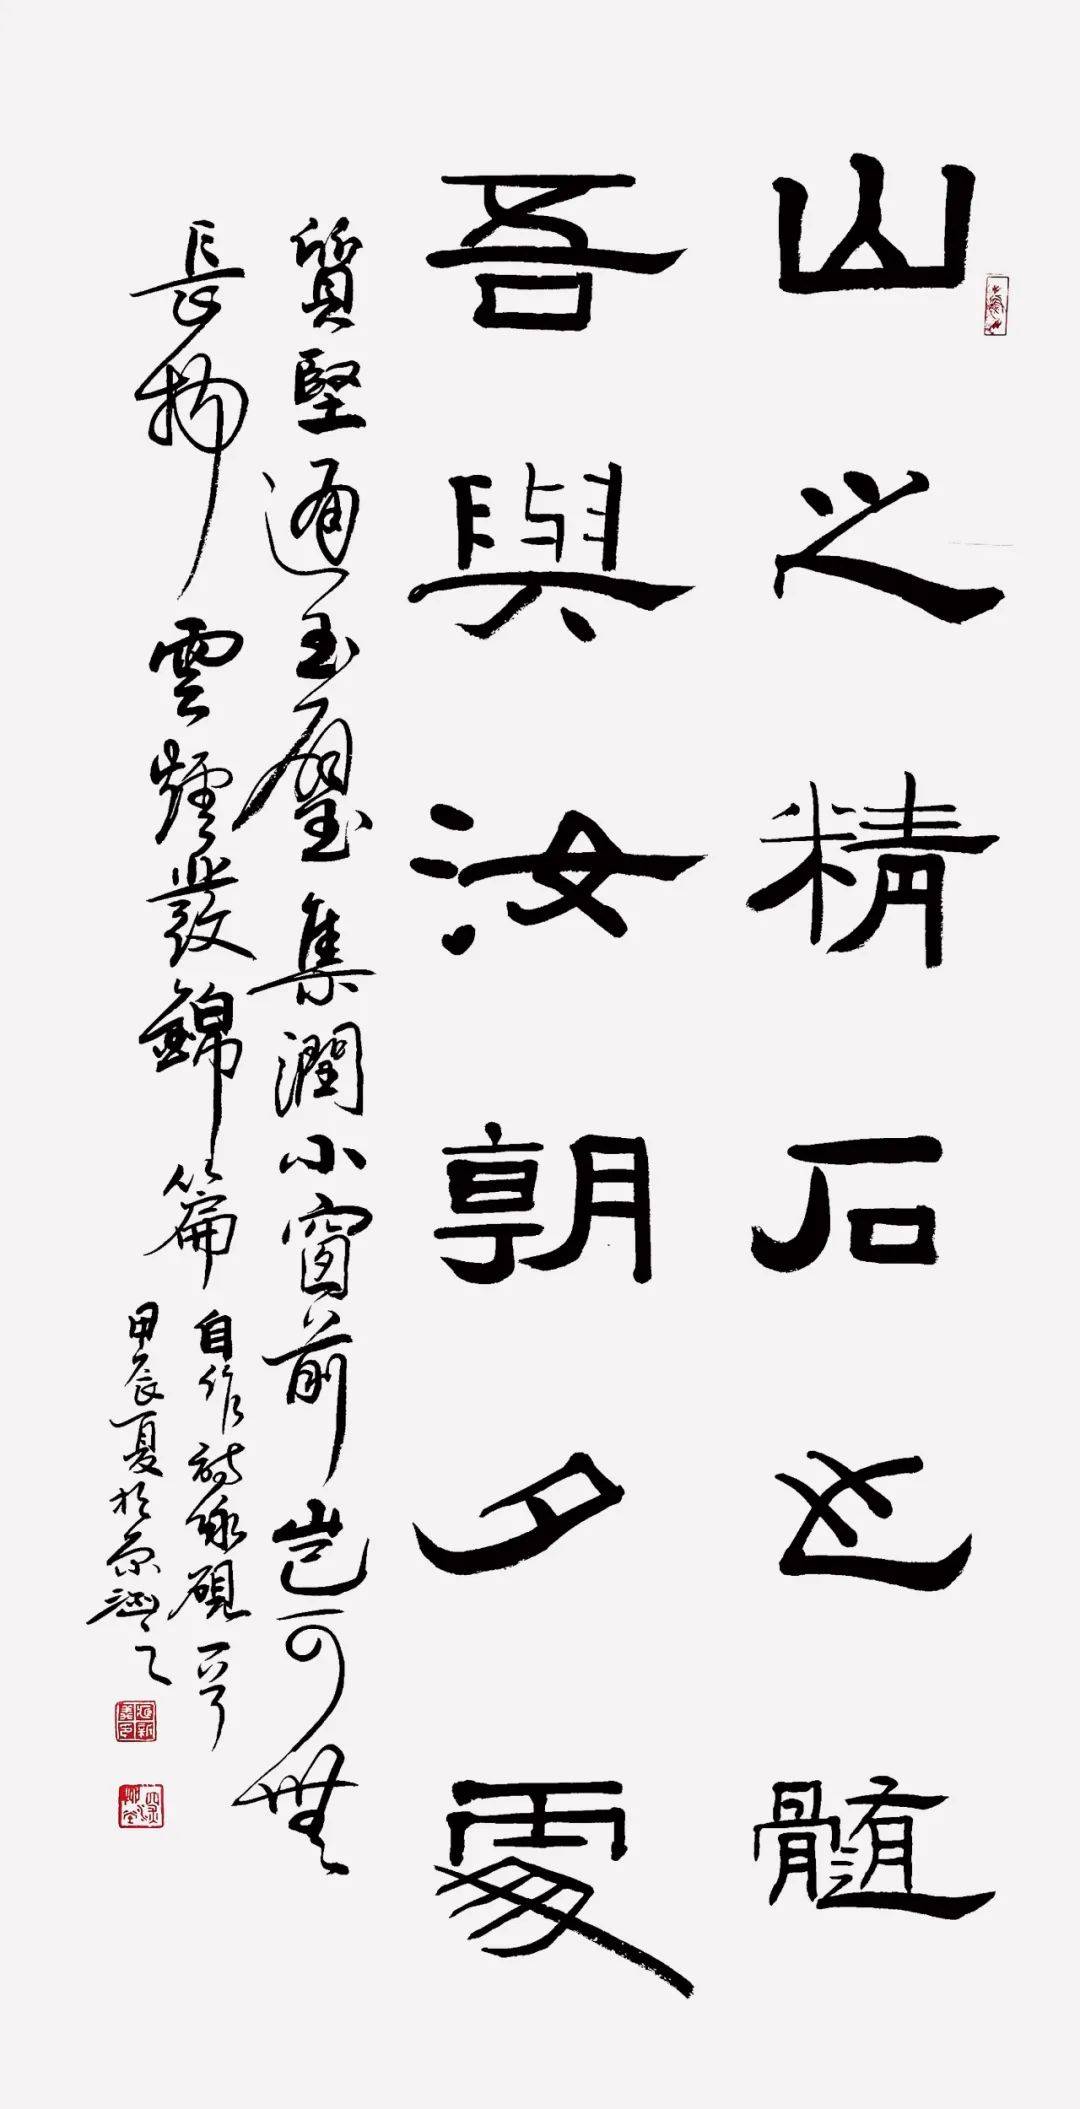 山之精石之髓
吾與汝朝夕處
質堅通玉璧集潤小窗前豈可無
長物雲煙發錦篇
自作詩詠硯一首
甲辰夏於京